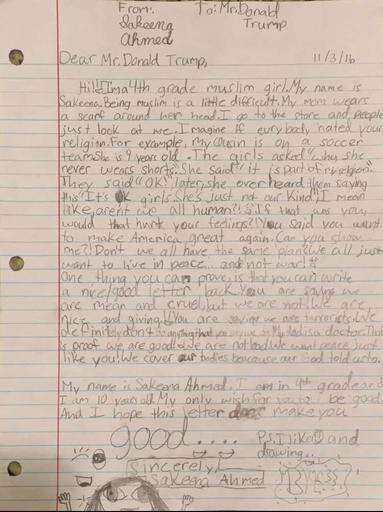 From: To: Mr. Donald
Sakeena Trump
Ahmed
Dear Mr. Donald Trump, 11/3/16
Hi!! I'm a 4th grade muslim girl. My name is
Sakeena. Being muslim is a little difficult. My mom wears
a scarf around her head. I go to the store and people
just look at me. Imagine if eurybody hated your
religion. For example, my cousin is on a soccer
team. She is 9 years old. The girls asked "why she
never wears shorts". She said "it is part of my religion".
They said "OK" later, she over heard them saying
this "It's OK girls. She's just not our kind". I mean
like, arent we all human?! If that was you,
would that hurt your feelings? You said you want
to make America great again. Can you show
me? Dont we all have the same planet. We all just
want to live in peace... and not war!
One thing you can prove is that you can write
a nice/good letter back. You are saying we
are mean and cruel, but we are not. We are
nice and giving. You are saying we are terrorists. We
definitely don't do anything that you say. My dad is a doctor. That
is proof we are good. We are not bad. We want peace just
like you. We cover our bodies because our God told us to.
My name is Sakeena Ahmed. I am in 4th grade and
I am 10 years old. My only wish for you to be good.
And I hope this letter does make you
good....
P.S. I like and
drawing...
Sincerely,
Sakeena Ahmed